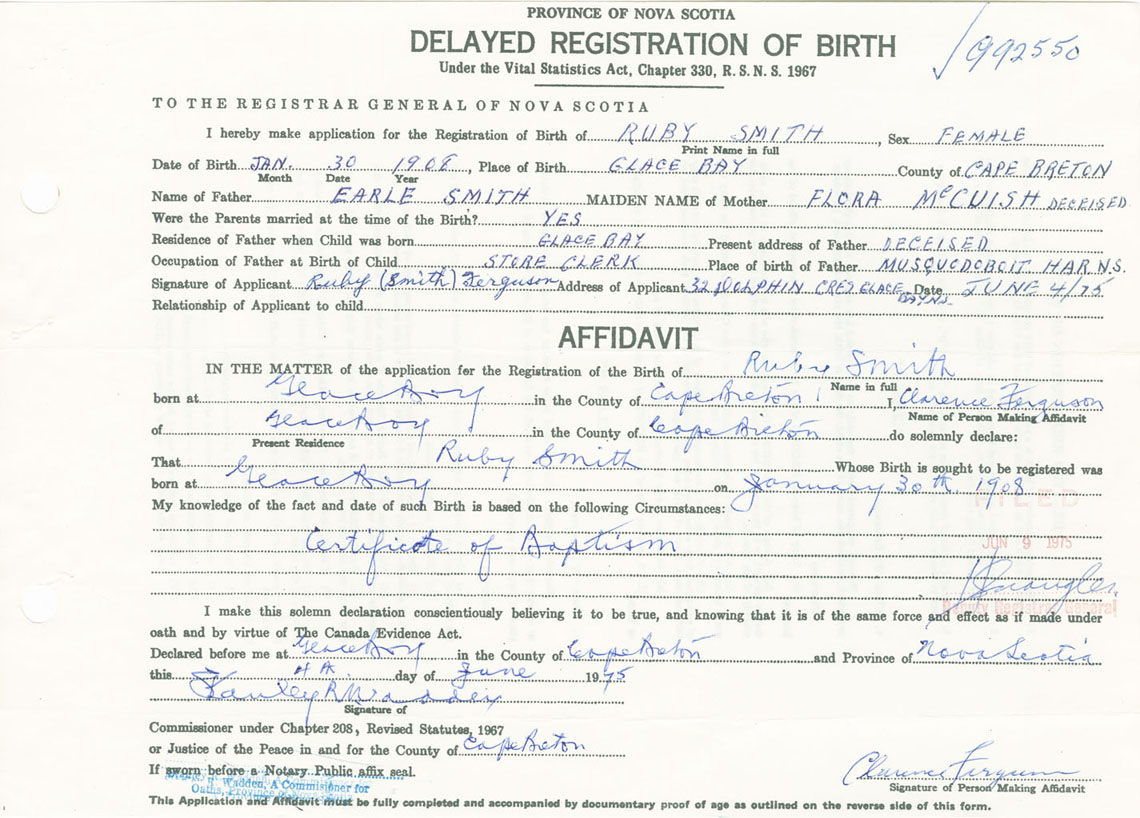 PROVINCE OF NOVA SCOTIA
DELAYED REGISTRATION OF BIRTH
992550
Under the Vital Statistics Act, Chapter 330, R. S. N. S. 1967
TO THE REGISTRAR GENERAL OF NOVA SCOTIA
I hereby make application for the Registration of Birth of RUBY SMITH, Sex FEMALE
Print Name in full
Date of Birth JAN. 30 1908, Place of Birth GLACE BAY County of CAPE BRETON
Month Date Year
Name of Father EARLE SMITH MAIDEN NAME of Mother FLORA McCUISH DECEISED
Were the Parents married at the time of the Birth? YES
Residence of Father when Child was born GLACE BAY Present address of Father DECEISED
Occupation of Father at Birth of Child STORE CLERK Place of birth of Father MUSQUODOBOIT HAR N.S.
Signature of Applicant Ruby (Smith) Ferguson Address of Applicant 32 DOLPHIN CRES GLACE BAY N.S. Date JUNE 4/75
Relationship of Applicant to child
AFFIDAVIT
IN THE MATTER of the application for the Registration of the Birth of Ruby Smith
Name in full
born at Glace Bay in the County of Cape Breton I, Clarence Ferguson
Name of Person Making Affidavit
of Glace Bay in the County of Cape Breton do solemnly declare:
Present Residence
That Ruby Smith Whose Birth is sought to be registered was
born at Glace Bay on January 30th. 1908
My knowledge of the fact and date of such Birth is based on the following Circumstances:
FILED
Certificate of Baptism
JUN 9 1975
Deputy Registrar General
I make this solemn declaration conscientiously believing it to be true, and knowing that it is of the same force and effect as if made under
oath and by virtue of The Canada Evidence Act.
Declared before me at Glace Bay in the County of Cape Breton and Province of Nova Scotia
this 4th. day of June 1975
Signature of
Commissioner under Chapter 208, Revised Statutes, 1967
or Justice of the Peace in and for the County of Cape Breton
If sworn before a Notary Public affix seal.
R. Wadden, A Commisioner for
Oaths, Province of
Clarence Ferguson
Signature of Person Making Affidavit
This Application and Affidavit must be fully completed and accompanied by documentary proof of age as outlined on the reverse side of this form.